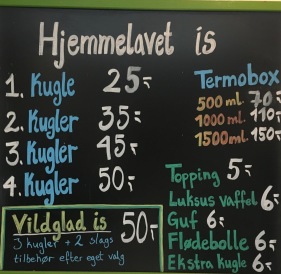 Hjemmelavet is
1. Kugle 25,-
2. Kugler 35,-
3. Kugler 45,-
4. Kugler 50,-
Vildglad is 50,-
3 kugler + 2 slags
tilbehør efter eget valg
Termobox
500 ml. 70,-
1000 ml. 110,-
1500 ml. 150,-
Topping 5,-
Luksus vaffel 6,-
Guf 6,-
Flødebolle 6,-
Ekstra kugle 6,-